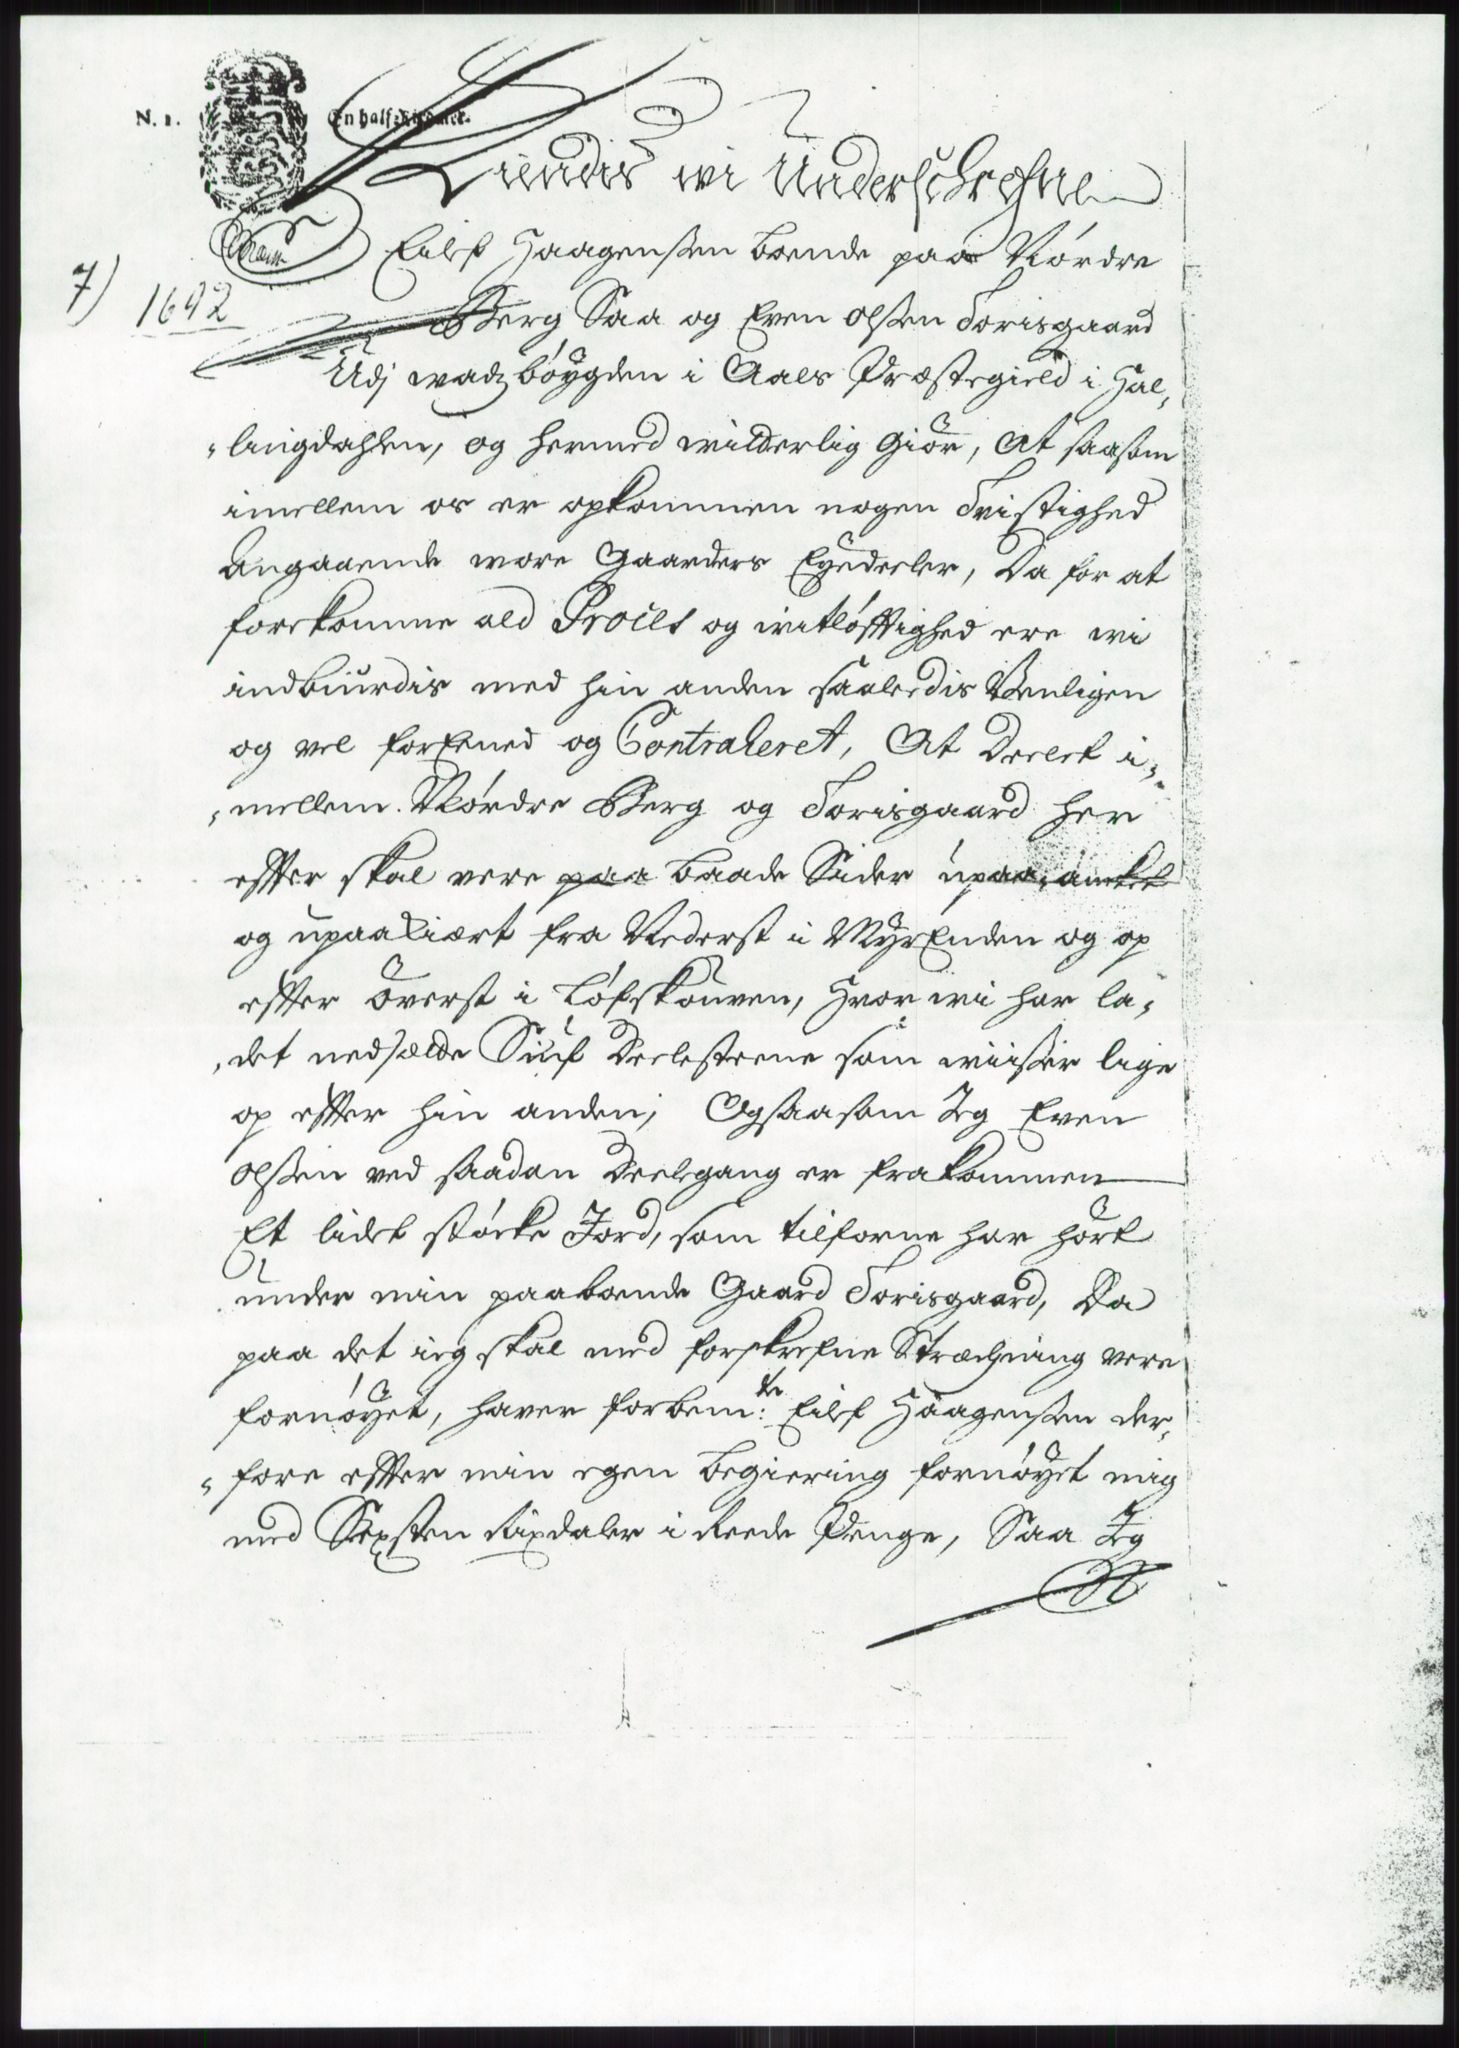 N. 1. En half
Kiendis wi Underschrefne
7) Eilf Haagensen boende paa Nórdre
1692 Berg Saa og Even Olsen Torisgaard
Udj wadzbóygden i Aals Præstegield i Hal„
„lingdahlen, og hermed witterlig Giör, At saasom
imellem os er opkommen nogen Tvistighed
Angaaende wore Gaarders Eyedeeler, Da for at
forekomme ald Proces og witlóftighed ere wi
indbiurdis med hin anden saaledis Venligen
og vel forEened og Contraheret, At Deelet i„
„mellem Nórdre Berg og Torisgaard her
effter skal vere paa baade Sider upaa-ancket
og upaakiært fra Nederst i MyrEnden og op
effter Överst i Lófskouven, Hvor wi har la„
„det nedsætte Siuf Deelesteene som wiiser lige
op effter hin anden; Ogsaasom Jeg Even
Olsen ved saadan Deelegang er frakommen
Et lidet stócke Jord, som tilforne har hört
under min paaboende Gaard Torisgaard, Da
paa det ieg skal med forskrefne Stræchning vere
fornóyet, haver forbem:te Eilf Haagensen der„
„fore effter min egen begiering fornóyet mig
med Sexsten Rixdaler i Reede Penge, Saa Jeg